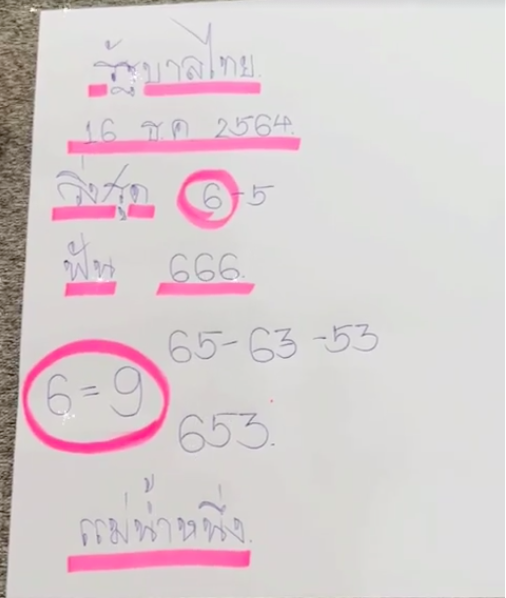 รัฐบาลไทย.
16 ธ.ค 2564.
วิ่งสุด 6-5
ฟัน 666.
65-63-53
6=9
653.
แม่น้ำหนึ่ง.